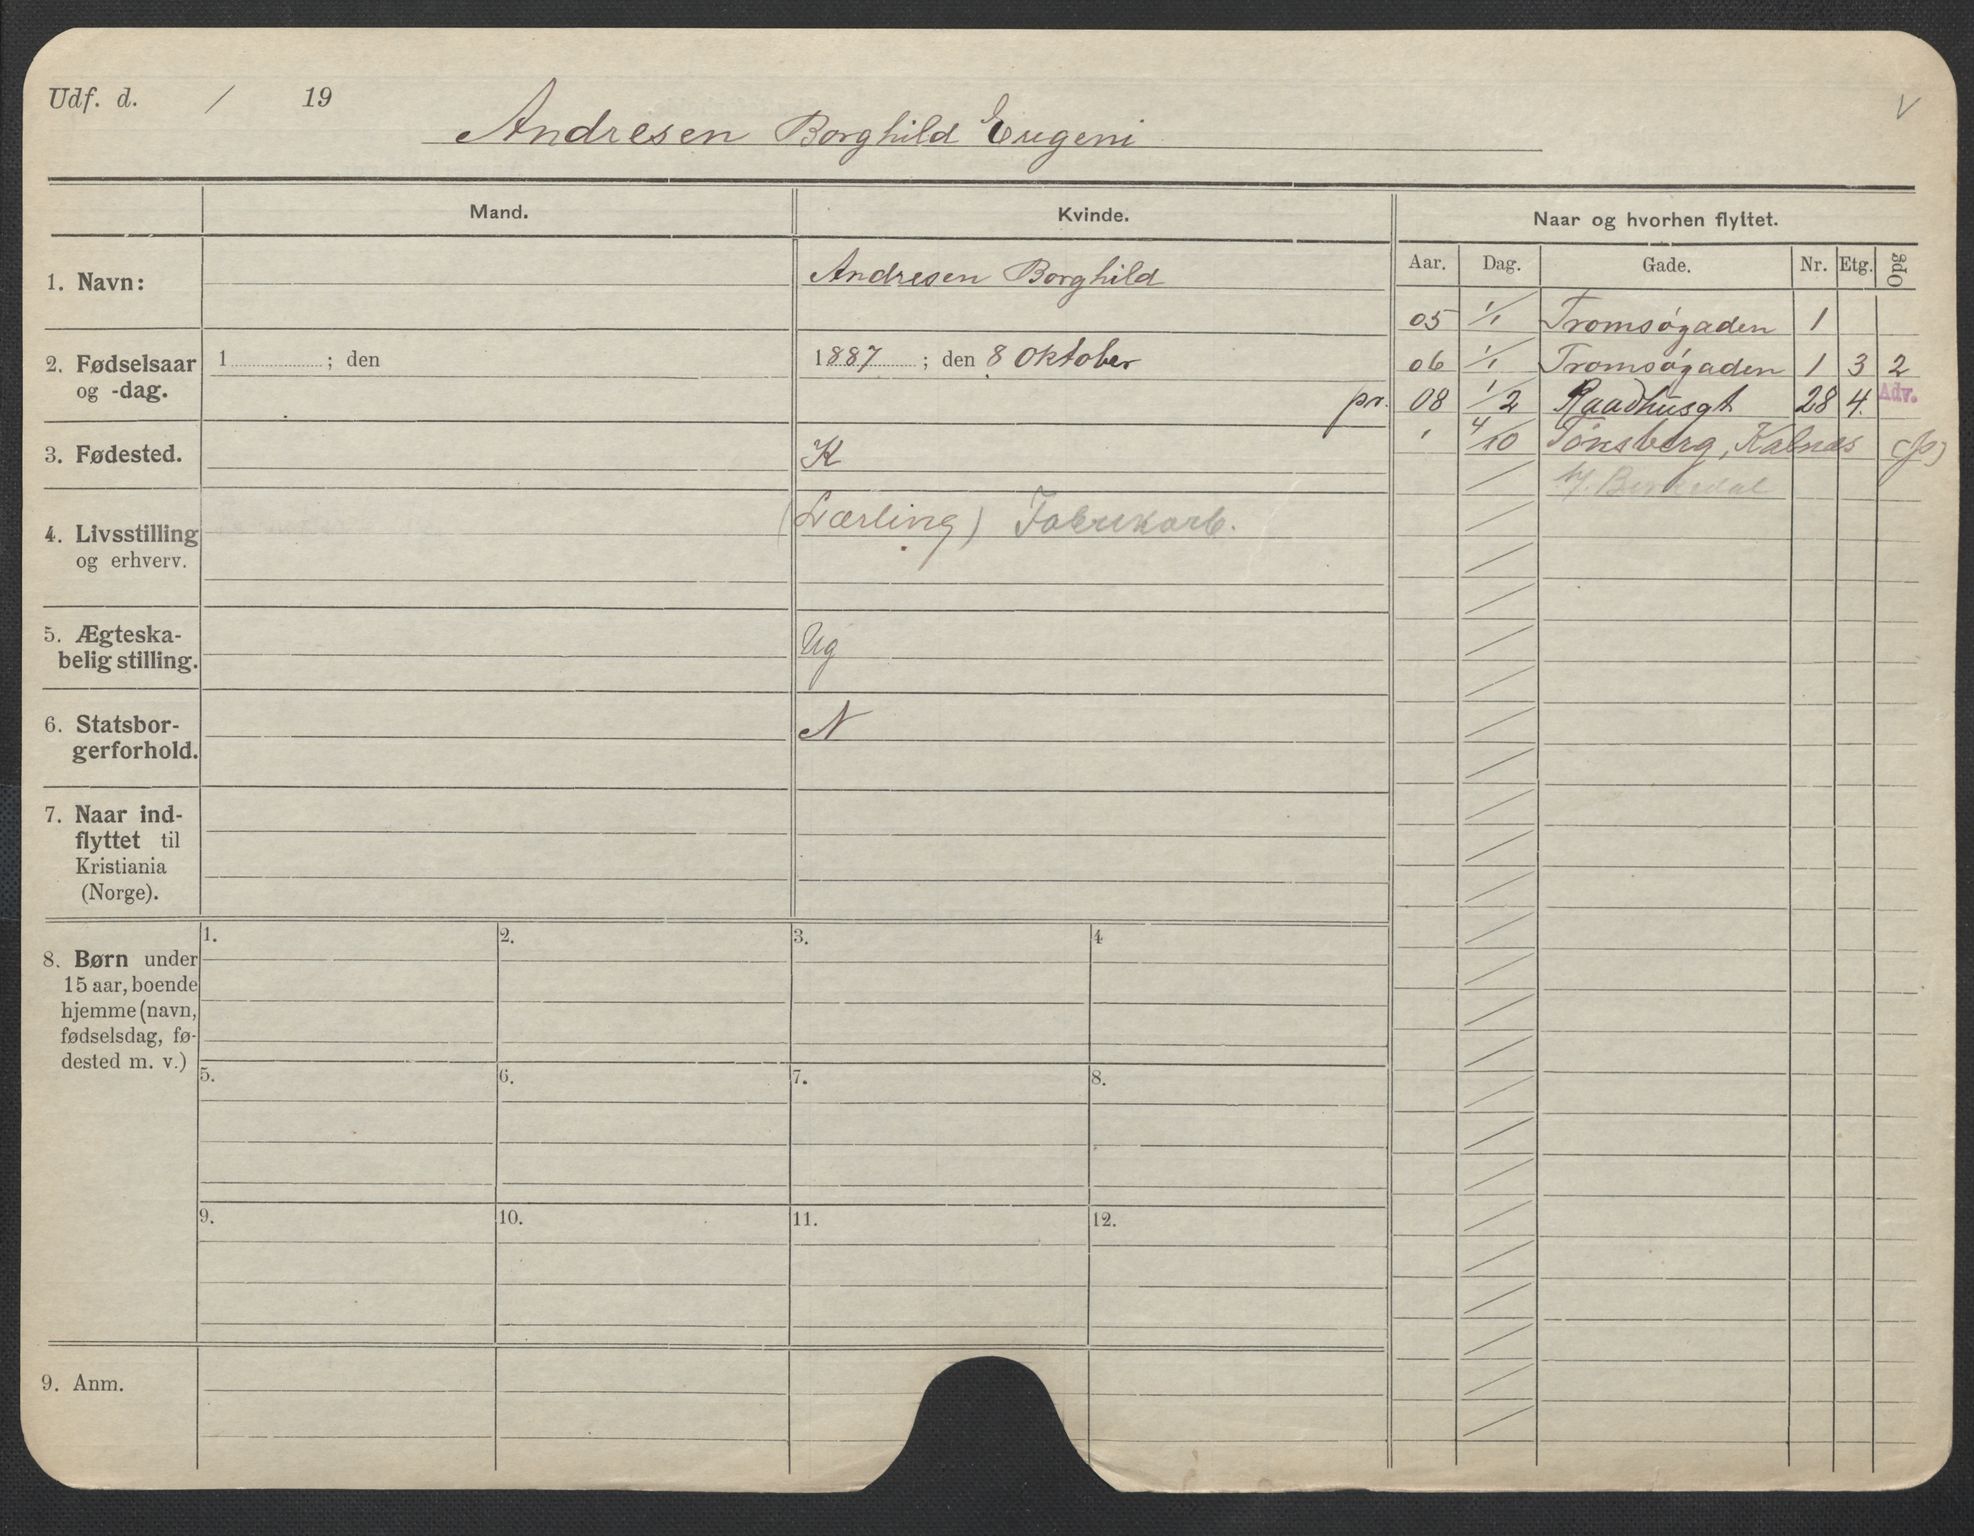 Udf. d. / 19
V
Andresen Borghild Eugeni
Mand.
Kvinde.
Naar og hvorhen flyttet.
Aar. Dag. Gade. Nr. Etg. Opg
1. Navn:
Andresen Borghild
05 1/1 Tromsøgaden 1
2. Fødselsaar
og -dag.
1 ; den
1887 ; den 8 Oktober
06 1/1 Tromsøgaden 1 3 2
pr. 08 1/2 Raadhusgt 28 4. Adv.
3. Fødested.
K
' 4/10 Tønsberg, Kalnes
4. Livsstilling
og erhverv.
(Lærling) Fabrikarb.
5. Ægteska-
belig stilling.
Ug
6. Statsbor-
gerforhold.
N
7. Naar ind-
flyttet til
Kristiania
(Norge).
8. Børn under
15 aar, boende
hjemme (navn,
fødselsdag, fø-
dested m. v.)
1. 2. 3. 4
5. 6. 7. 8.
9. 10. 11. 12.
9. Anm.